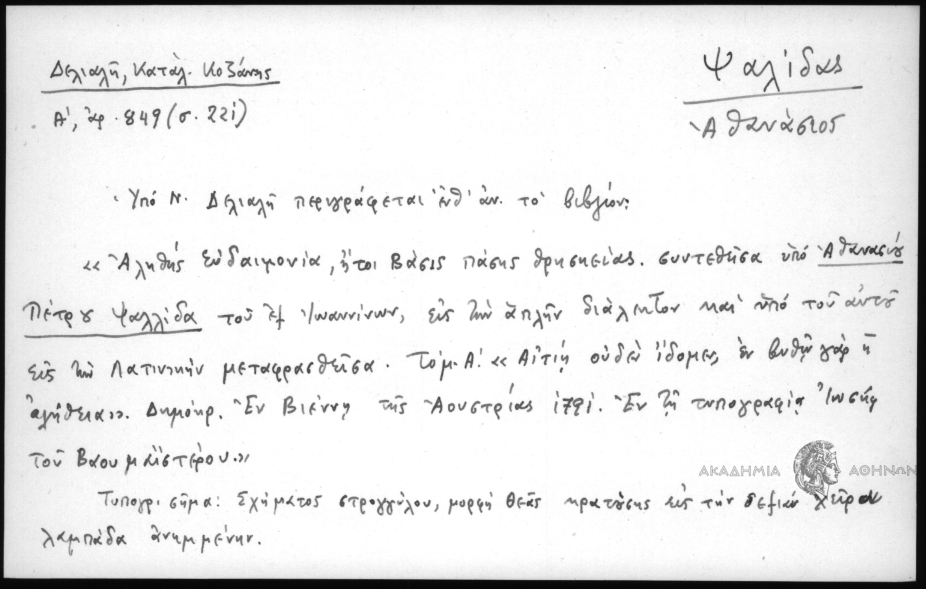 Δελιαλῆ, Κατάλ. Κοζάνης
Α', ἀρ. 849 (σ. 221)
Ψαλίδας
Ἀθανάσιος
Ὑπό Ν. Δελιαλῆ περιγράφεται ἐνθ' ἀν. τό βιβλίον:
«Ἀληθής Εὐδαιμονία, ἤτοι Βάσις πάσης θρησκείας. συντεθεῖσα ὑπό Ἀθανασίου
Πέτρου Ψαλλίδα τοῦ ἐξ Ἰωαννίνων, εἰς τὴν ἁπλῆν διάλεκτον καί ὑπό τοῦ αὐτοῦ
εἰς τὴν Λατινικὴν μεταφρασθεῖσα. Τόμ. Α'. « Αἰτίῃ οὐδέν ἴδομεν, ἐν βυθῷ γάρ ἡ
ἀλήθεια». Δημόκρ. Ἐν Βιέννῃ τῆς Ἀουστρίας 1791. Ἐν τῇ τυπογραφίᾳ Ἰωσήφ
τοῦ Βαουμαϊστέρου.»
Τυπογρ. σῆμα: Σχήματος στρογγύλου, μορφή θεᾶς κρατούσης εἰς τήν δεξιάν χεῖρα
λαμπάδα ἀνημμένην.
ΑΚΑΔΗΜΙΑ ΑΘΗΝΩΝ